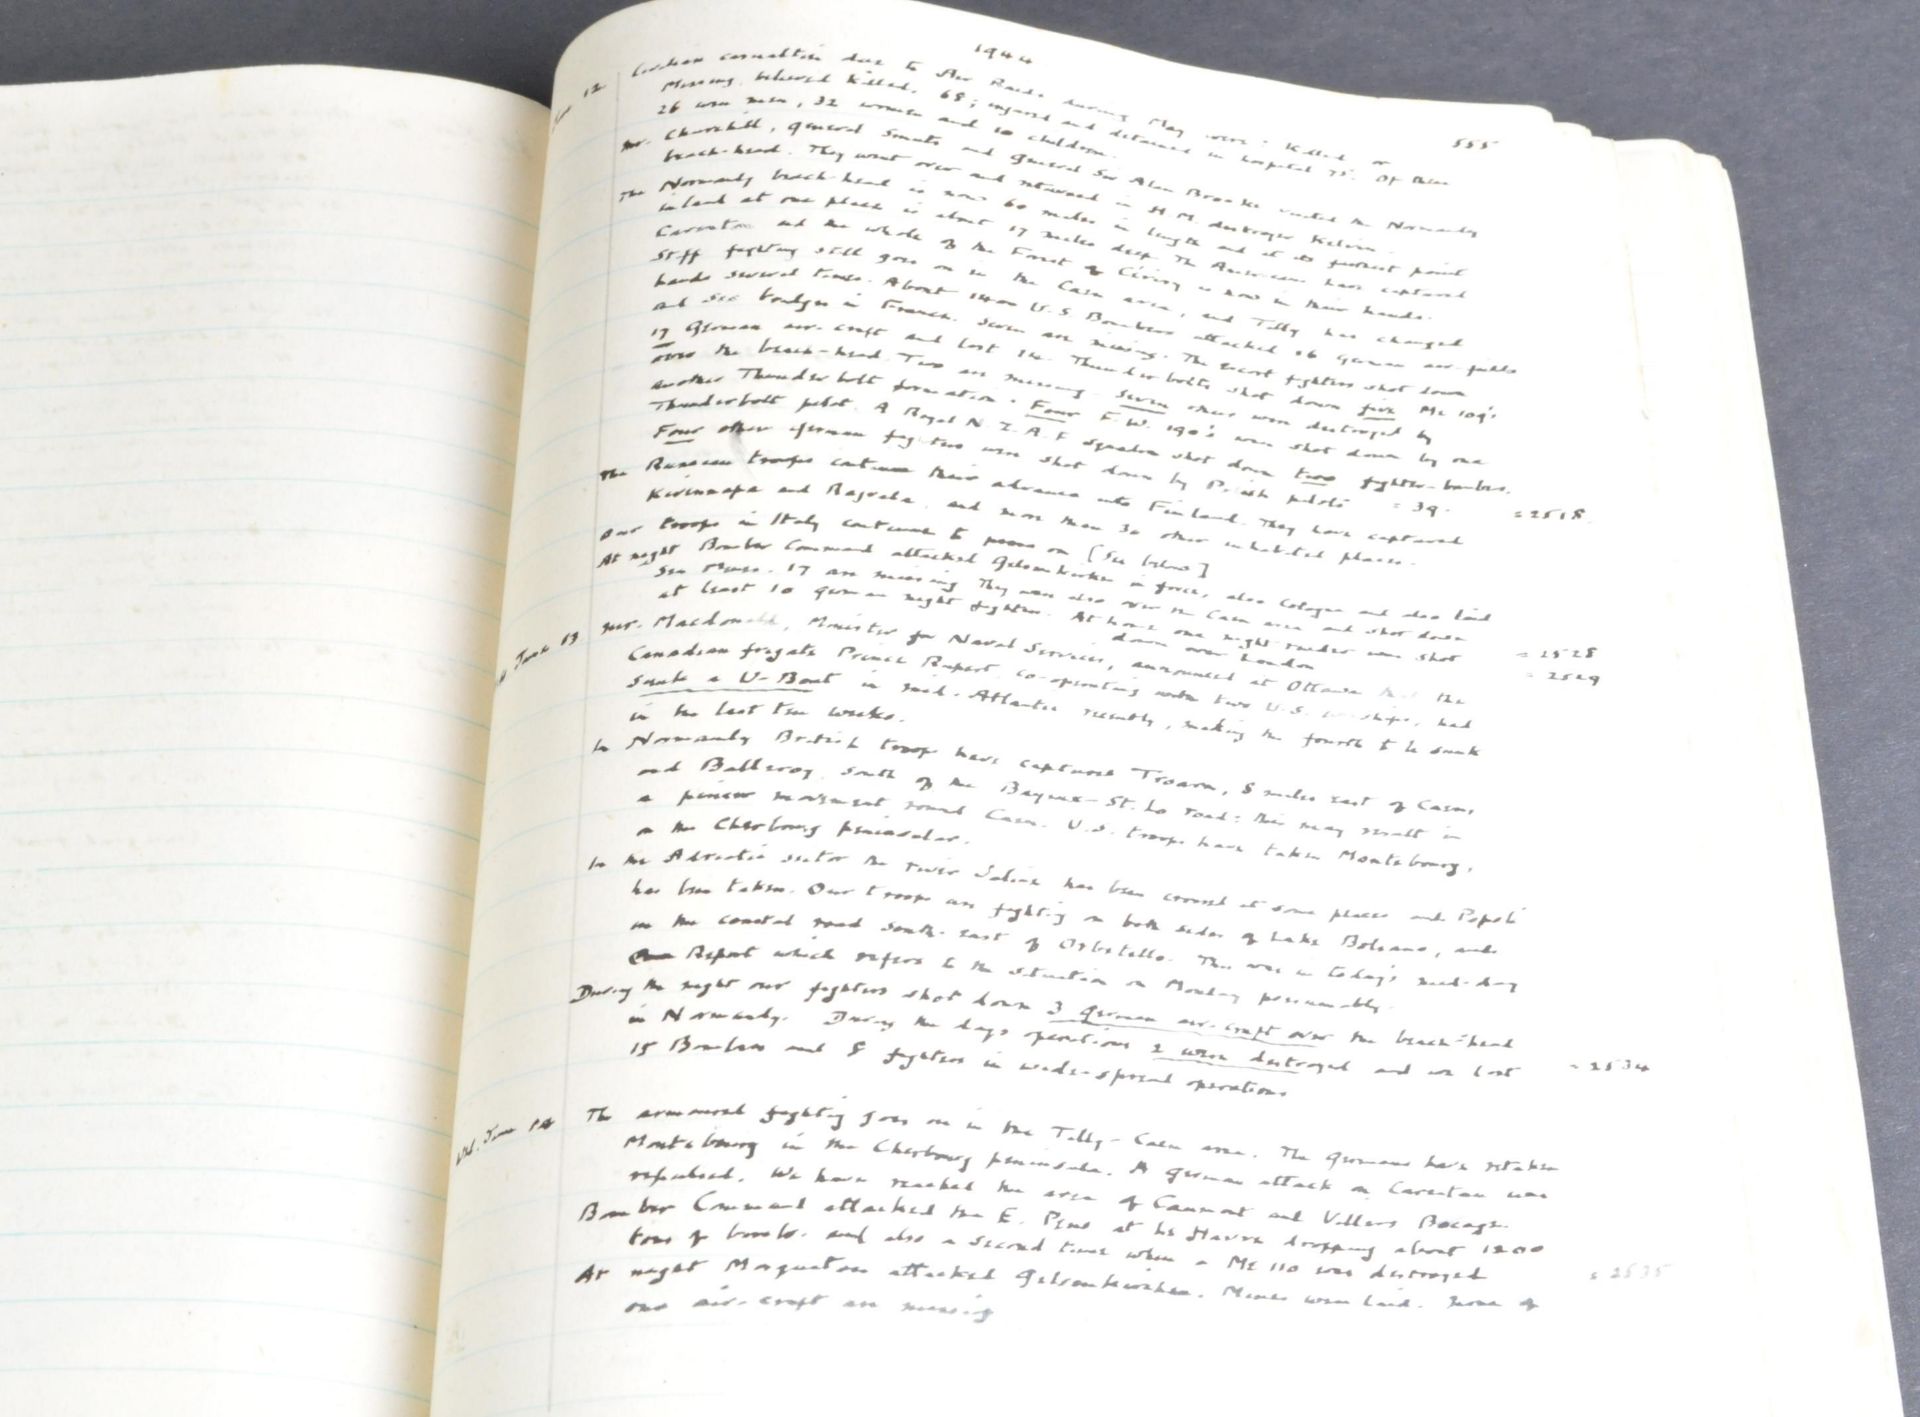 1944
555
June 12 Civilian casualties due to Air Raids during May were: Killed or
Missing, believed Killed, 68; injured and detained in hospital 75. Of these
26 were men, 32 women and 10 children.
Mr. Churchill, General Smuts and General Sir Alan Brooke visited the Normandy
beach-head. They went over and returned in H.M. destroyer Kelvin.
The Normandy beach-head is now 60 miles in length and at its furthest point
inland at one place is about 17 miles deep. The Americans have captured
Carentan and the whole of the Forest of Cérisy is now in their hands.
Stiff fighting still goes on in the Caen area, and Tilly has changed
hands several times. About 1400 U.S Bombers attacked 16 German air-fields
and six bridges in France. Seven are missing. The escort fighters shot down
17 German air-craft and lost 14. Thunderbolts shot down five Me 109's
over the beach-head. Two are missing. Seven others were destroyed by
another Thunderbolt formation. Four F.W. 190's were shot down by one
Thunderbolt pilot. A Royal N.Z.A.F Squadron shot down two fighter-bombers.
Four other German fighters were shot down by British pilots = 39. = 2518.
The Russian troops continue their advance into Finland. They have captured
Kivinnapa and Rajvola, and more than 30 other inhabited places.
Our troops in Italy continue to press on [See below]
At night Bomber Command attacked Gelsenkirchen in force, also Cologne and also laid
Sea Mines. 17 are missing They were also over the Caen area and shot down
at least 10 German night fighters. At home one night raider was shot = 2528
down over London = 2529
June 13 Mr. Macdonald, Minister for Naval Services, announced at Ottawa that the
Canadian frigate Prince Rupert, co-operating with two U.S. warships, had
sunk a U-Boat in mid-Atlantic recently, making the fourth to be sunk
in the last ten weeks.
In Normandy British troops have captured Troarn, 8 miles east of Caen,
and Balleroy, south of the Bayeux-St. Lo road: this may result in
a pincer movement round Caen. U.S. troops have taken Montebourg,
on the Cherbourg peninsular.
In the Adriatic sector the river Saline has been crossed at some places and Popoli
has been taken. Our troops are fighting on both sides of Lake Bolsano, and
on the coastal road south-east of Orbetello. This was in today's mid-day
Report which refers to the situation on Monday presumably.
During the night our fighters shot down 3 German air-craft over the beach-head
in Normandy. During the days operations 2 were destroyed and we lost = 2534
15 Bombers and 8 fighters in wide-spread operations
Wed. June 14 The armoured fighting goes on in the Tilly-Caen area. The Germans have retaken
Montebourg in the Cherbourg peninsula. A German attack on Carentan was
repulsed. We have reached the area of Caumont and Villers Bocage.
Bomber Command attacked the E. Pens at Le Havre dropping about 1200
tons of bombs. and also a second time when a Me 110 was destroyed = 2535
At night Mosquitoes attacked Gelsenkirchen. Mines were laid. None of
our air-craft are missing